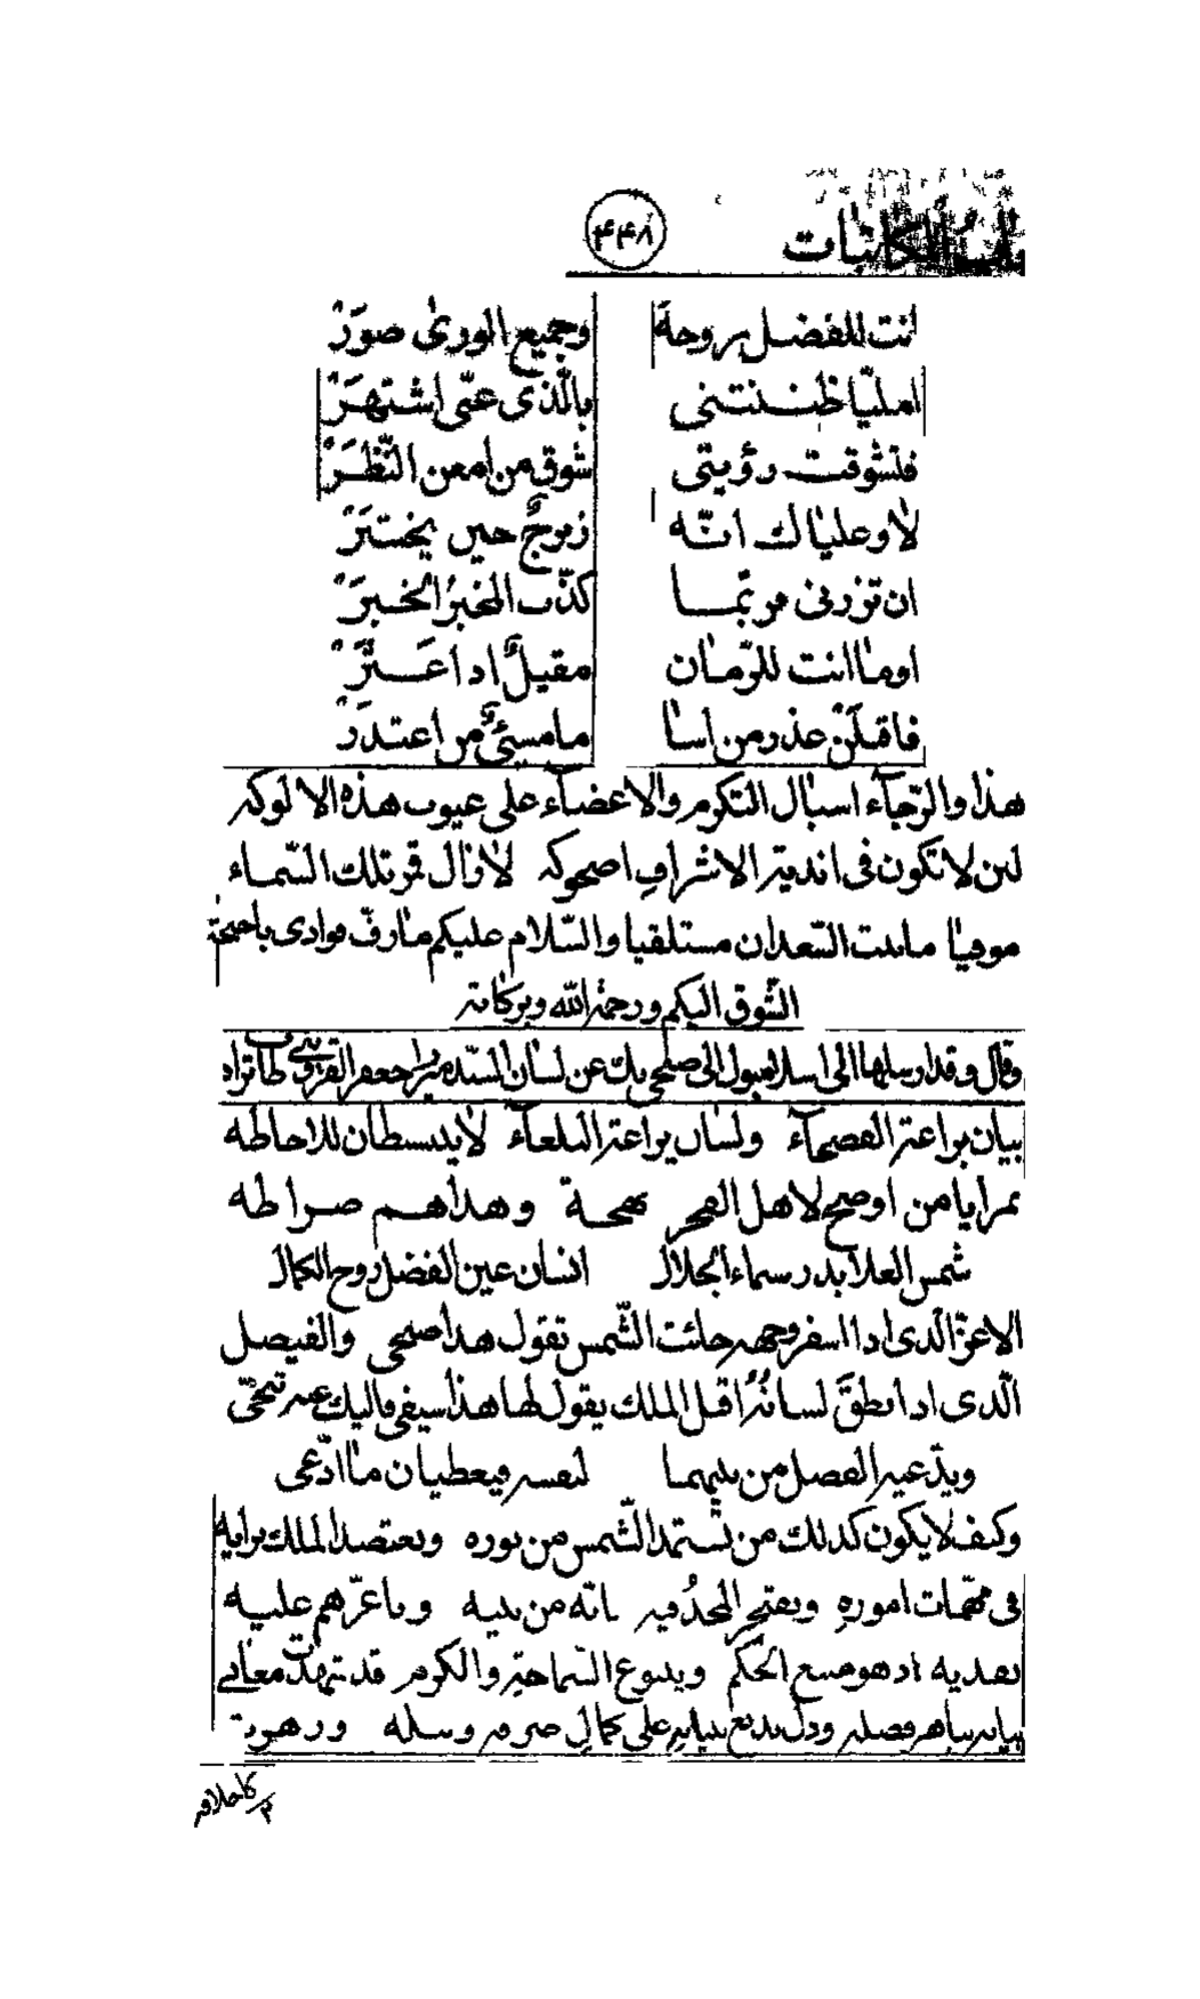 باب المكاتبات ٤٤٨
انت للفضل روحه وجميع الورى صور
امليّا ظننتنى بالّذى عنّى اشتهر
فتشوقت رؤيتى شوق من امعن النّظر
لا وعلياك انّه زبرج حين يختبر
ان تزرنى فربّما كذّب المخبرُ الخبر
اوما انت للزّمان مقيلٌ اذا عثر
فاقبلن عذر من اسا ما مسيئٌ من اعتذر
هذا والرّجآء اسبال التكرم والاغضآء على عيوب هذه الالوكه
لئن لا تكون فى اندية الاشراف اضحوكه لا زال قمر تلك السّماء
موفيا مستلقيا والسّلام عليكم ما رفّ فوادى باجنحة
الشّوق اليكم ورحمة الله وبركاته
وقال وقد ارسلها الى اسلامبول الى صبحى بك عن لسان السّيد ميرزا جعفر القزوينى طاب ثراه
بيان براعة الفصحآء ولسان يراعة البلغآء لا ينبسطان للاحاطه
بمزايا من اوضح لاهل الفخر نهجه وهداهم صراطه
شمس العلا بدر سماء الجلال انسان عين الفضل روح الكمال
الاغرّ الّذى اذا اسفر وجهه جائت الشّمس تقول هذا صبحى والفيصل
الّذى اذا نطق لسانُهُ اقبل الملك يقول لها هذا سيفى فاليك عنه تنحّى
ويدّعيه الفضل من بينهما لنفسه فيعطيان ما ادّعى
وكيف لا يكون كذلك من تستمد الشّمس من نوره ويعتضد الملك برايه
فى مهمّات اموره ويفتخر المجدُ فيه بانّه من بنيه وباعزّهم عليه
يفديه اذ هو منبع الحكم وينبوع السّماحة والكرم قد شهدت معانى
بيانه بباهر فضله ودلّ بديع بنيانه على كمال وزهوت
كاخلاقه